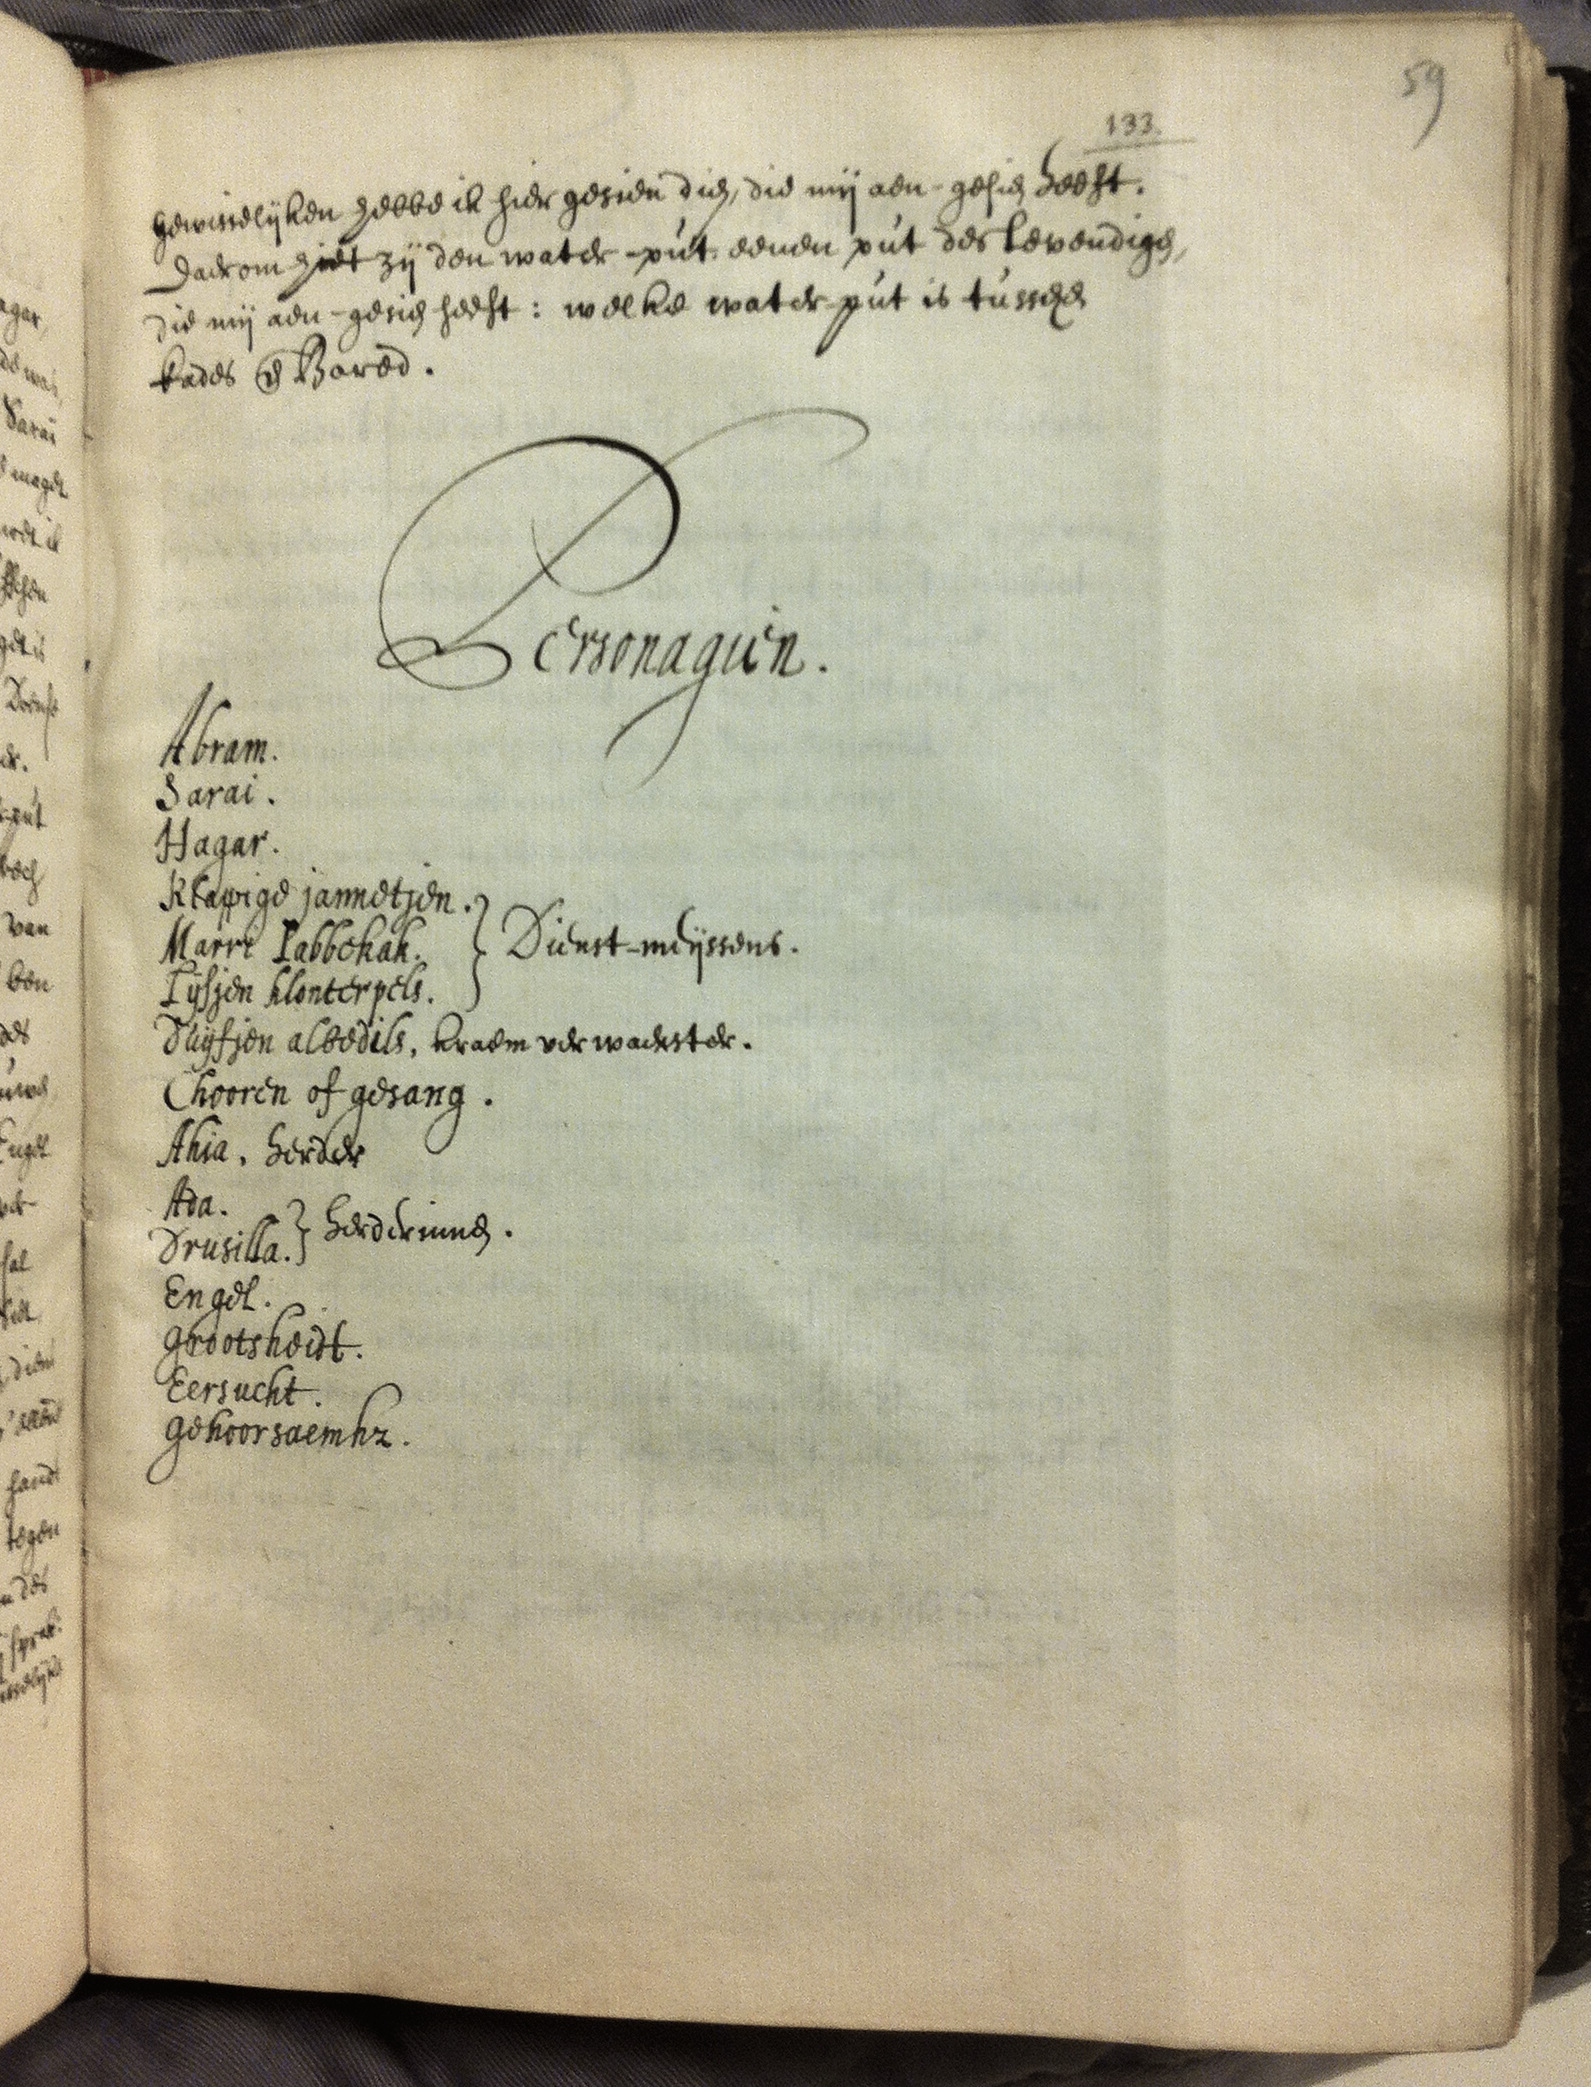 59
133.
gewisselijken hebbe ik hier gesien dien, die mij aen-gesien heeft.
Daerom hiet zij den water-pút eenen pút des levendigen,
die mij aen-gesien heeft: welke water-put is tússchen
kades en Bared.
Personagien.
Abram.
Sarai.
Hagar.
Klapige jannetjen.
Marri Labbekak. } Dienst-meijssens.
Lijsjen klonterpels.
Duijfjen albedils, kraem verwaerster.
Chooren of gesang.
Ahia, herder
Ada.
Drusilla. } herderinnen.
Engel.
Grootsheidt.
Eersucht.
Gehoorsaemhz.
agar,
Sarai
maget
van
ben
des
Engel
sal
hand
tegen